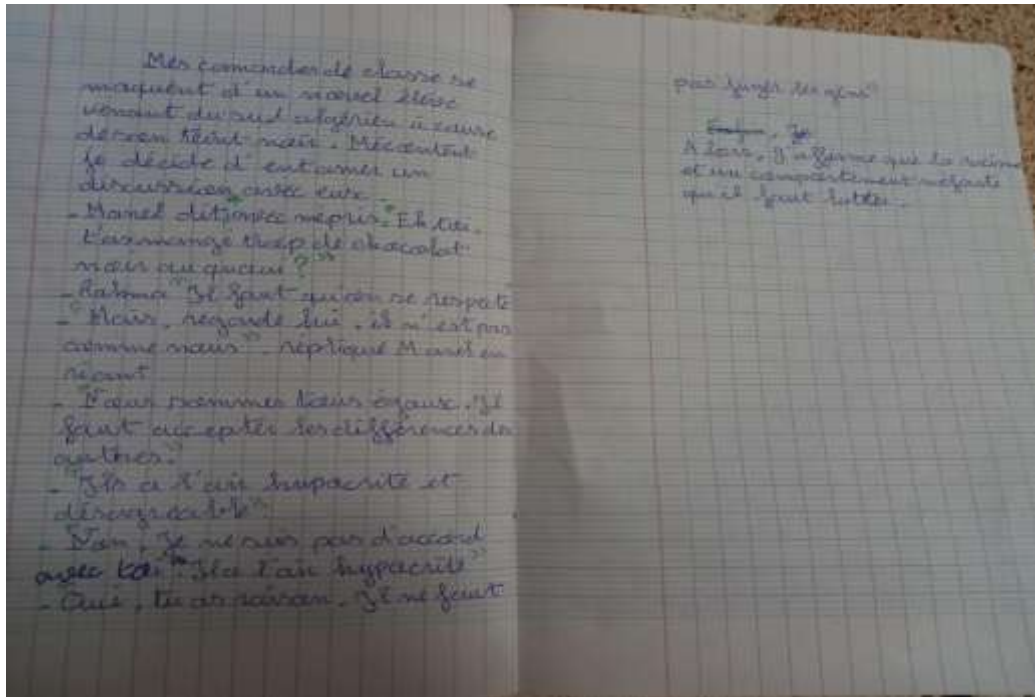 Mes camarades de classe se
moquent d'un nouvel élève
venant du sud algérien à cause
de son teint noir. Mécontent
je décide d'entamer un
discussion avec eux.
- Manel dit avec mépris. "Eh toi.
t'as mangé trop de chocolat
noir ou quoi ?"
- Rahma "Il faut qu'on se respecte
- "Mais, regarde lui, il n'est pas
comme nous". réplique Manel en
riant
- "Nous sommes tous égaux. Il
faut accepter les différences des
autres."
- "Ils a l'air hupocrité et
désagréable".
- Non, je ne suis pas d'accord
avec toi "Il a l'air hypocrite"
- Oui, tu as raison. Il ne faut
pas juger les gens"
Alors, J'affirme que la racime
et un comportement néfaste
qu'il faut lutter.